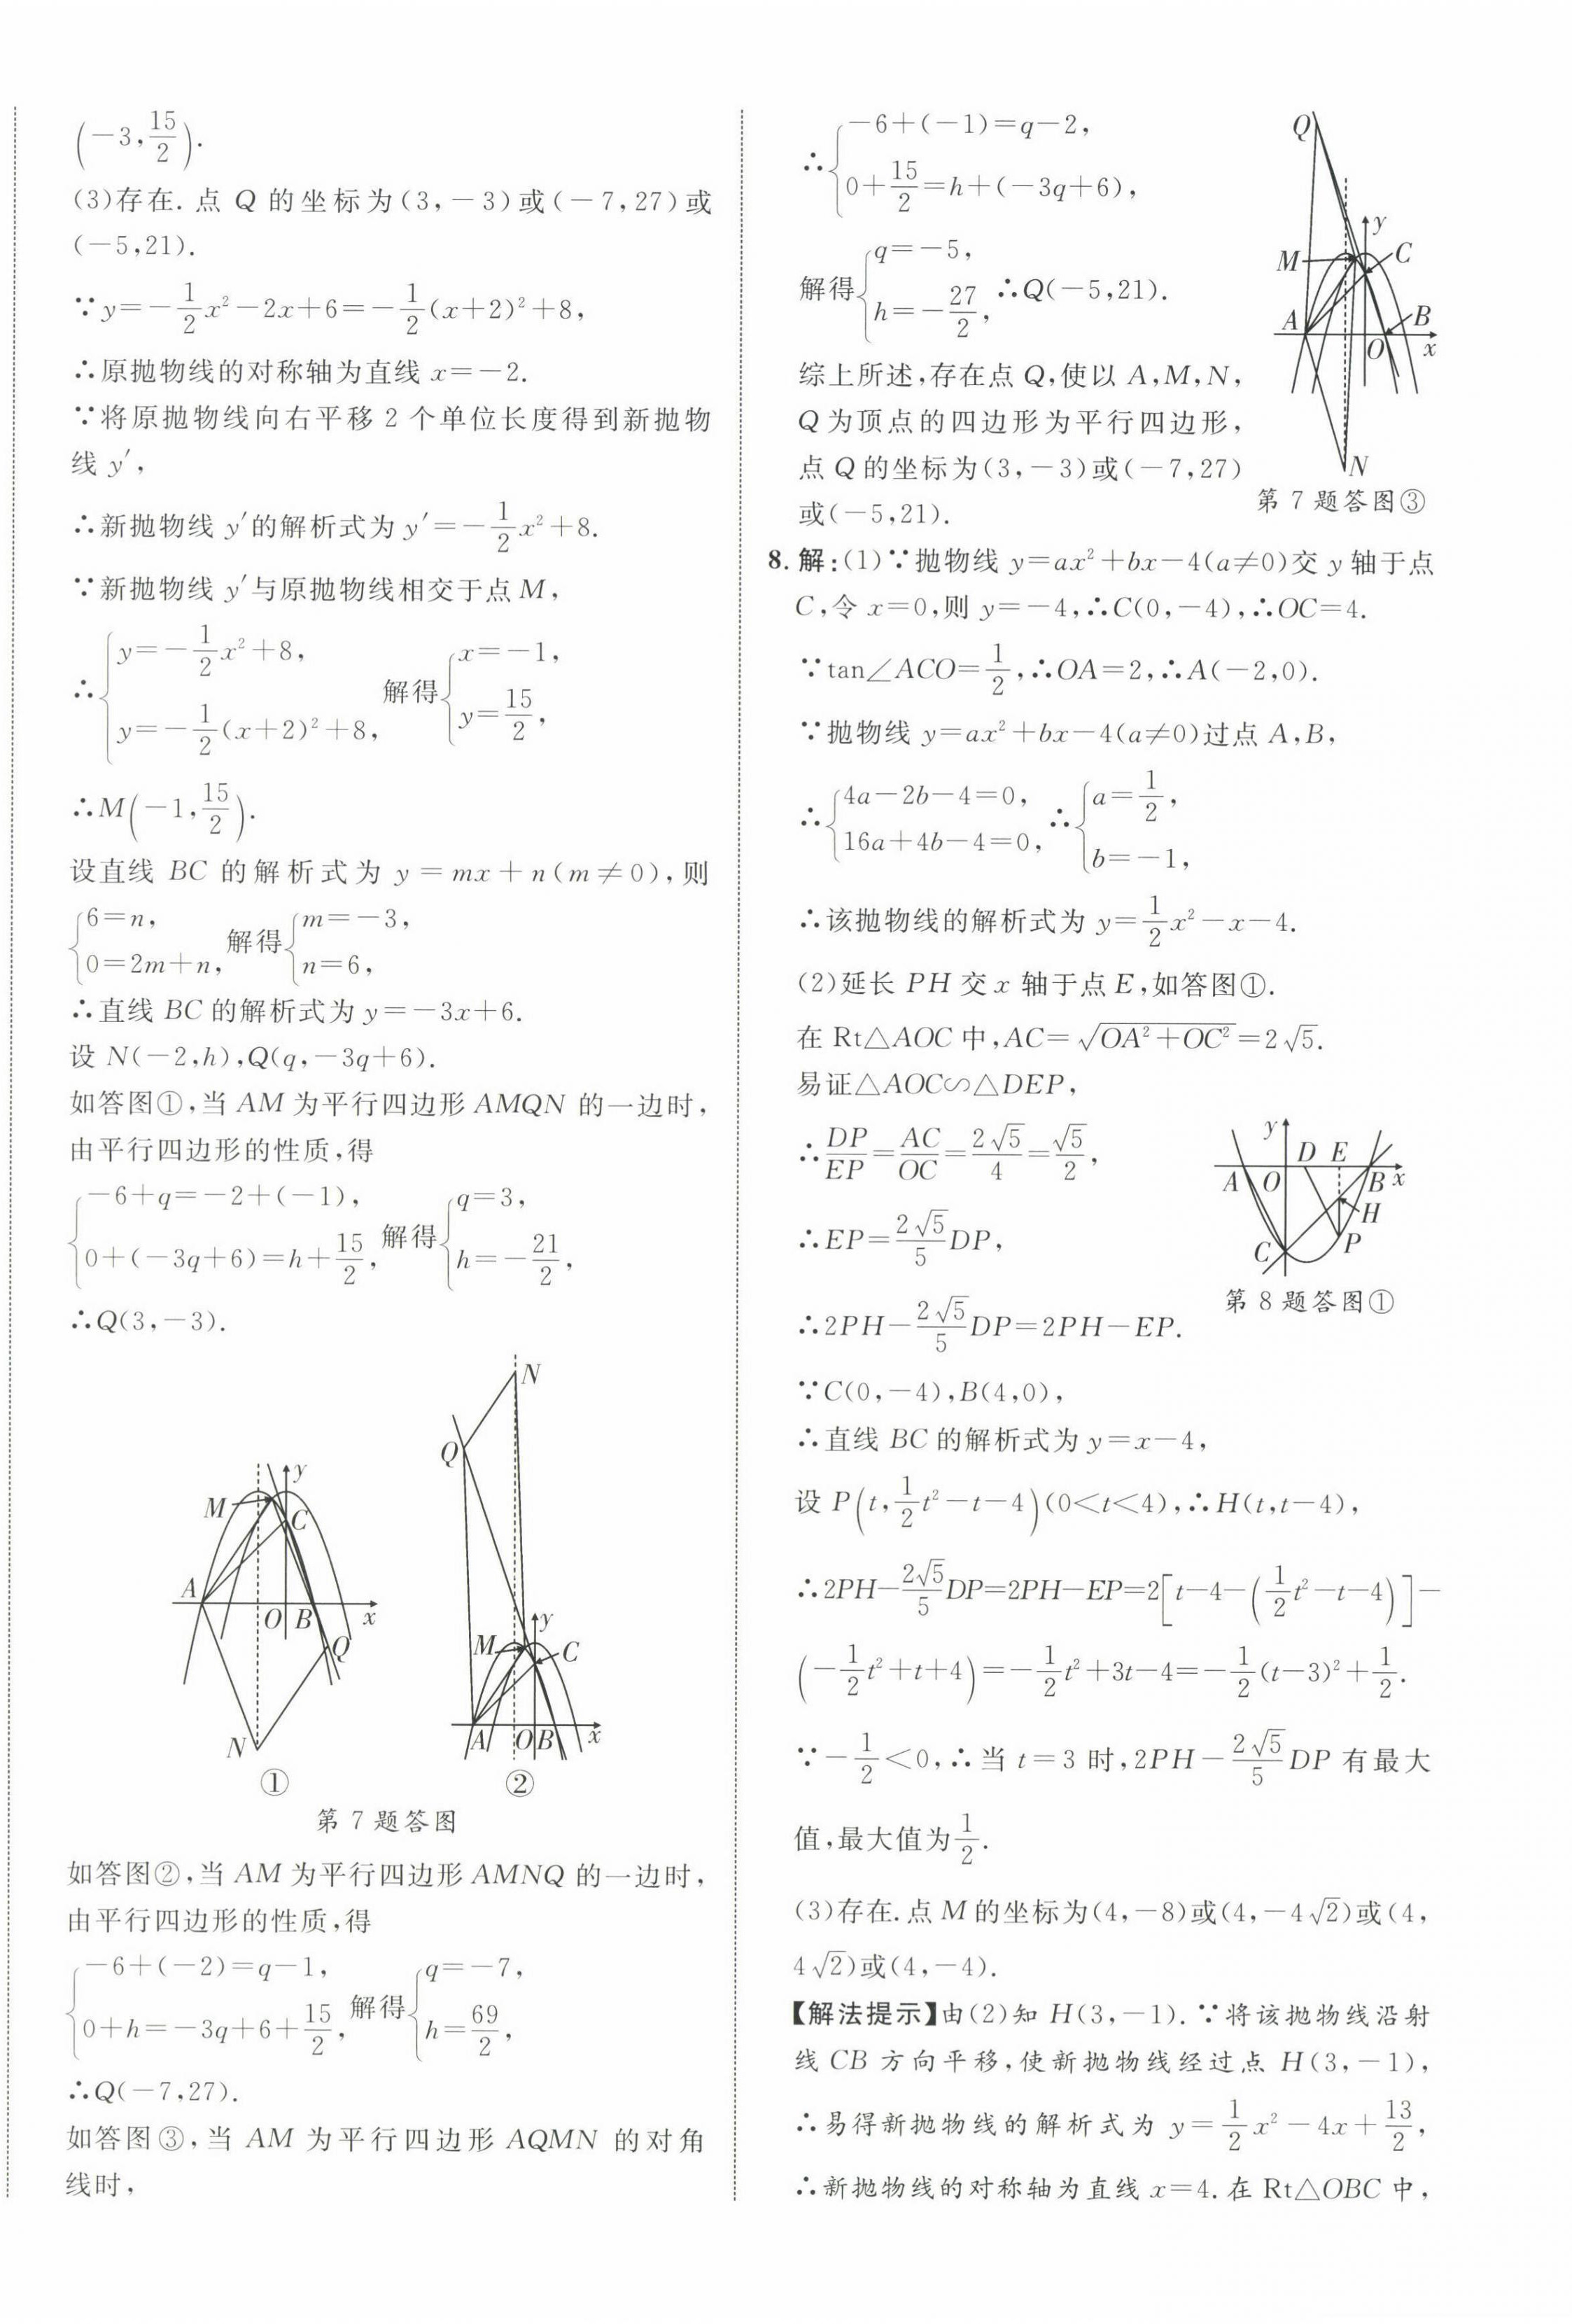 (−3,15/2).
(3)存在. 点 Q 的坐标为(3,−3)或(−7,27)或
(−5,21).
∵y=−1/2x²−2x+6=−1/2(x+2)²+8,
∴原抛物线的对称轴为直线 x=−2.
∵将原抛物线向右平移 2 个单位长度得到新抛物
线 y′,
∴新抛物线 y′的解析式为 y′=−1/2x²+8.
∵新抛物线 y′与原抛物线相交于点 M,
∴{y=−1/2x²+8, y=−1/2(x+2)²+8, 解得{x=−1, y=15/2,
∴M(−1,15/2).
设直线 BC 的解析式为 y=mx+n(m≠0),则
{6=n, 0=2m+n, 解得{m=−3, n=6,
∴直线 BC 的解析式为 y=−3x+6.
设 N(−2,h),Q(q,−3q+6).
如答图①,当 AM 为平行四边形 AMQN 的一边时,
由平行四边形的性质,得
{−6+q=−2+(−1), 0+(−3q+6)=h+15/2, 解得{q=3, h=−21/2,
∴Q(3,−3).
N
Q
y
M
C
A
O
B
x
Q
N
y
M
C
A
O
B
x
①
②
第 7 题答图
如答图②,当 AM 为平行四边形 AMNQ 的一边时,
由平行四边形的性质,得
{−6+(−2)=q−1, 0+h=−3q+6+15/2, 解得{q=−7, h=69/2,
∴Q(−7,27).
如答图③,当 AM 为平行四边形 AQMN 的对角
线时,
∴{−6+(−1)=q−2, 0+15/2=h+(−3q+6),
解得{q=−5, h=−27/2, ∴Q(−5,21).
综上所述,存在点 Q,使以 A,M,N,
Q 为顶点的四边形为平行四边形,
点 Q 的坐标为(3,−3)或(−7,27)
或(−5,21).
Q
y
M
C
A
B
O
x
N
第 7 题答图③
8. 解:(1)∵抛物线 y=ax²+bx−4(a≠0)交 y 轴于点
C,令 x=0,则 y=−4,∴C(0,−4),∴OC=4.
∵tan∠ACO=1/2,∴OA=2,∴A(−2,0).
∵抛物线 y=ax²+bx−4(a≠0)过点 A,B,
∴{4a−2b−4=0, 16a+4b−4=0, ∴{a=1/2, b=−1,
∴该抛物线的解析式为 y=1/2x²−x−4.
(2)延长 PH 交 x 轴于点 E,如答图①.
在 Rt△AOC 中,AC=√(OA²+OC²)=2√5.
易证△AOC∽△DEP,
∴DP/EP=AC/OC=2√5/4=√5/2,
∴EP=2√5/5DP,
∴2PH−2√5/5DP=2PH−EP.
y
D
E
A
O
B
x
H
C
P
第 8 题答图①
∵C(0,−4),B(4,0),
∴直线 BC 的解析式为 y=x−4,
设 P(t,1/2t²−t−4)(0<t<4),∴H(t,t−4),
∴2PH−2√5/5DP=2PH−EP=2[t−4−(1/2t²−t−4)]−
(−1/2t²+t+4)=−1/2t²+3t−4=−1/2(t−3)²+1/2.
∵−1/2<0,∴当 t=3 时,2PH−2√5/5DP 有最大
值,最大值为1/2.
(3)存在.点 M 的坐标为(4,−8)或(4,−4√2)或(4,
4√2)或(4,−4).
【解法提示】由(2)知 H(3,−1).∵将该抛物线沿射
线 CB 方向平移,使新抛物线经过点 H(3,−1),
∴易得新抛物线的解析式为 y=1/2x²−4x+13/2,
∴新抛物线的对称轴为直线 x=4.在 Rt△OBC 中,